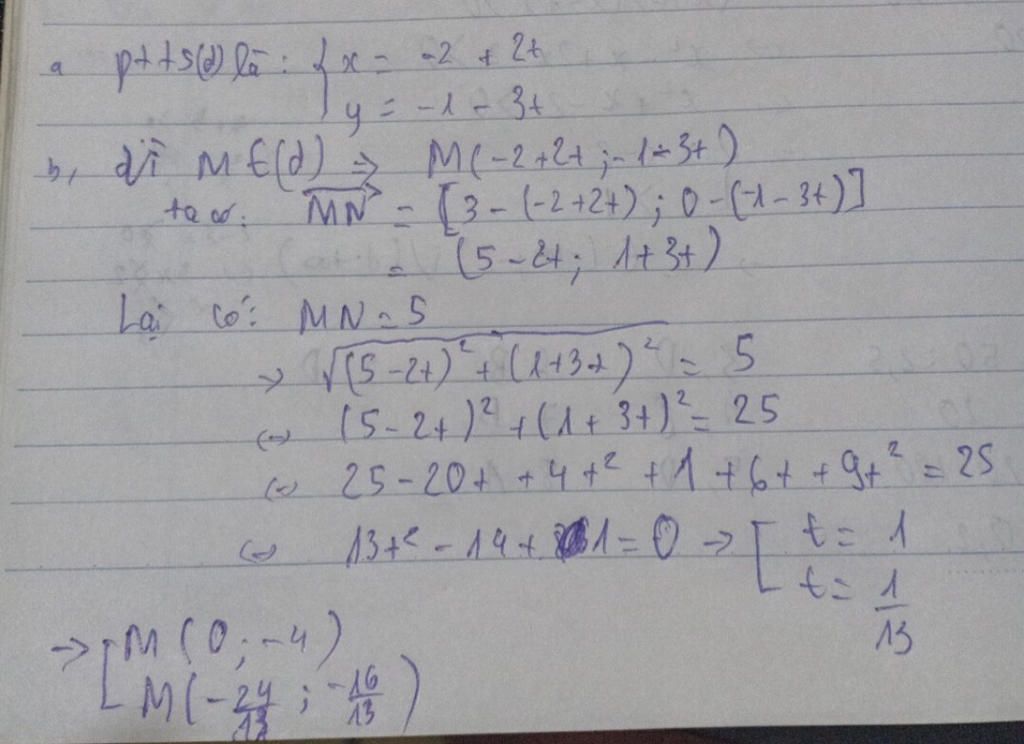 a ptts(d) là: { x = -2 + 2t
y = -1 - 3t
b, Vì M ∈ (d) => M(-2+2t ; -1-3t)
ta có: \overrightarrow{MN} = [3 - (-2+2t) ; 0 - (-1 - 3t)]
= (5 - 2t ; 1+3t)
Lại có: MN = 5
→ √((5-2t)² + (1+3t)²) = 5
(=) (5-2t)² + (1+3t)² = 25
(=) 25 - 20t + 4t² + 1 + 6t + 9t² = 25
(=) 13t² - 14t + 1 = 0 → [ t = 1
t = 1/13
→ [ M(0 ; -4)
M(-24/13 ; -16/13)